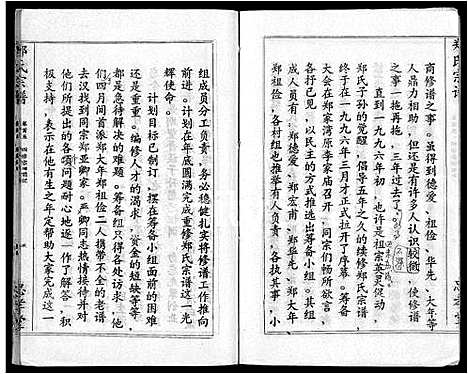 郑氏宗谱
商修谱之事。虽得到德爱、祖俭、华先、大年等等
人鼎力相助,但还是有许多人认识较微,使修谱
之事一拖再拖,
直到一九九六年初,也许是祖宗英灵促动,
郑氏子孙的觉醒,倡导五年之久的续修郑氏宗谱,
终于在一九九六年三月才正式拉开了序幕。筹备
大会在郑家湾原李家庙召开,同宗们畅所欲言,
各抒己见,以民主的方式推选出筹备小组。其组
成人员有,郑大年、郑宏才、郑华先、郑德爱、
郑祖俭,各村组也推举有人负责,各执其事,小
郑氏宗谱
组成员分工负责,务必稳健扎实将修谱工作推向
前进。计划在年底圆满完成重修郑氏宗谱这一光
辉使命。
计划目标已制订,摆在筹备小组面前的困难
重重。编修人才的渴求,资金的短缺等等,
都是急待解决的难题。筹备组只得各处访求,他
们四月间首派郑大年郑祖俭二人携带不全的老谱
去汉找到同宗郑亚卿家。严卿同志热情接待并对
他们所提出的各项问题耐心地逐一作了解答,积
极支持,表示在他有生之年定帮助大家完成这一